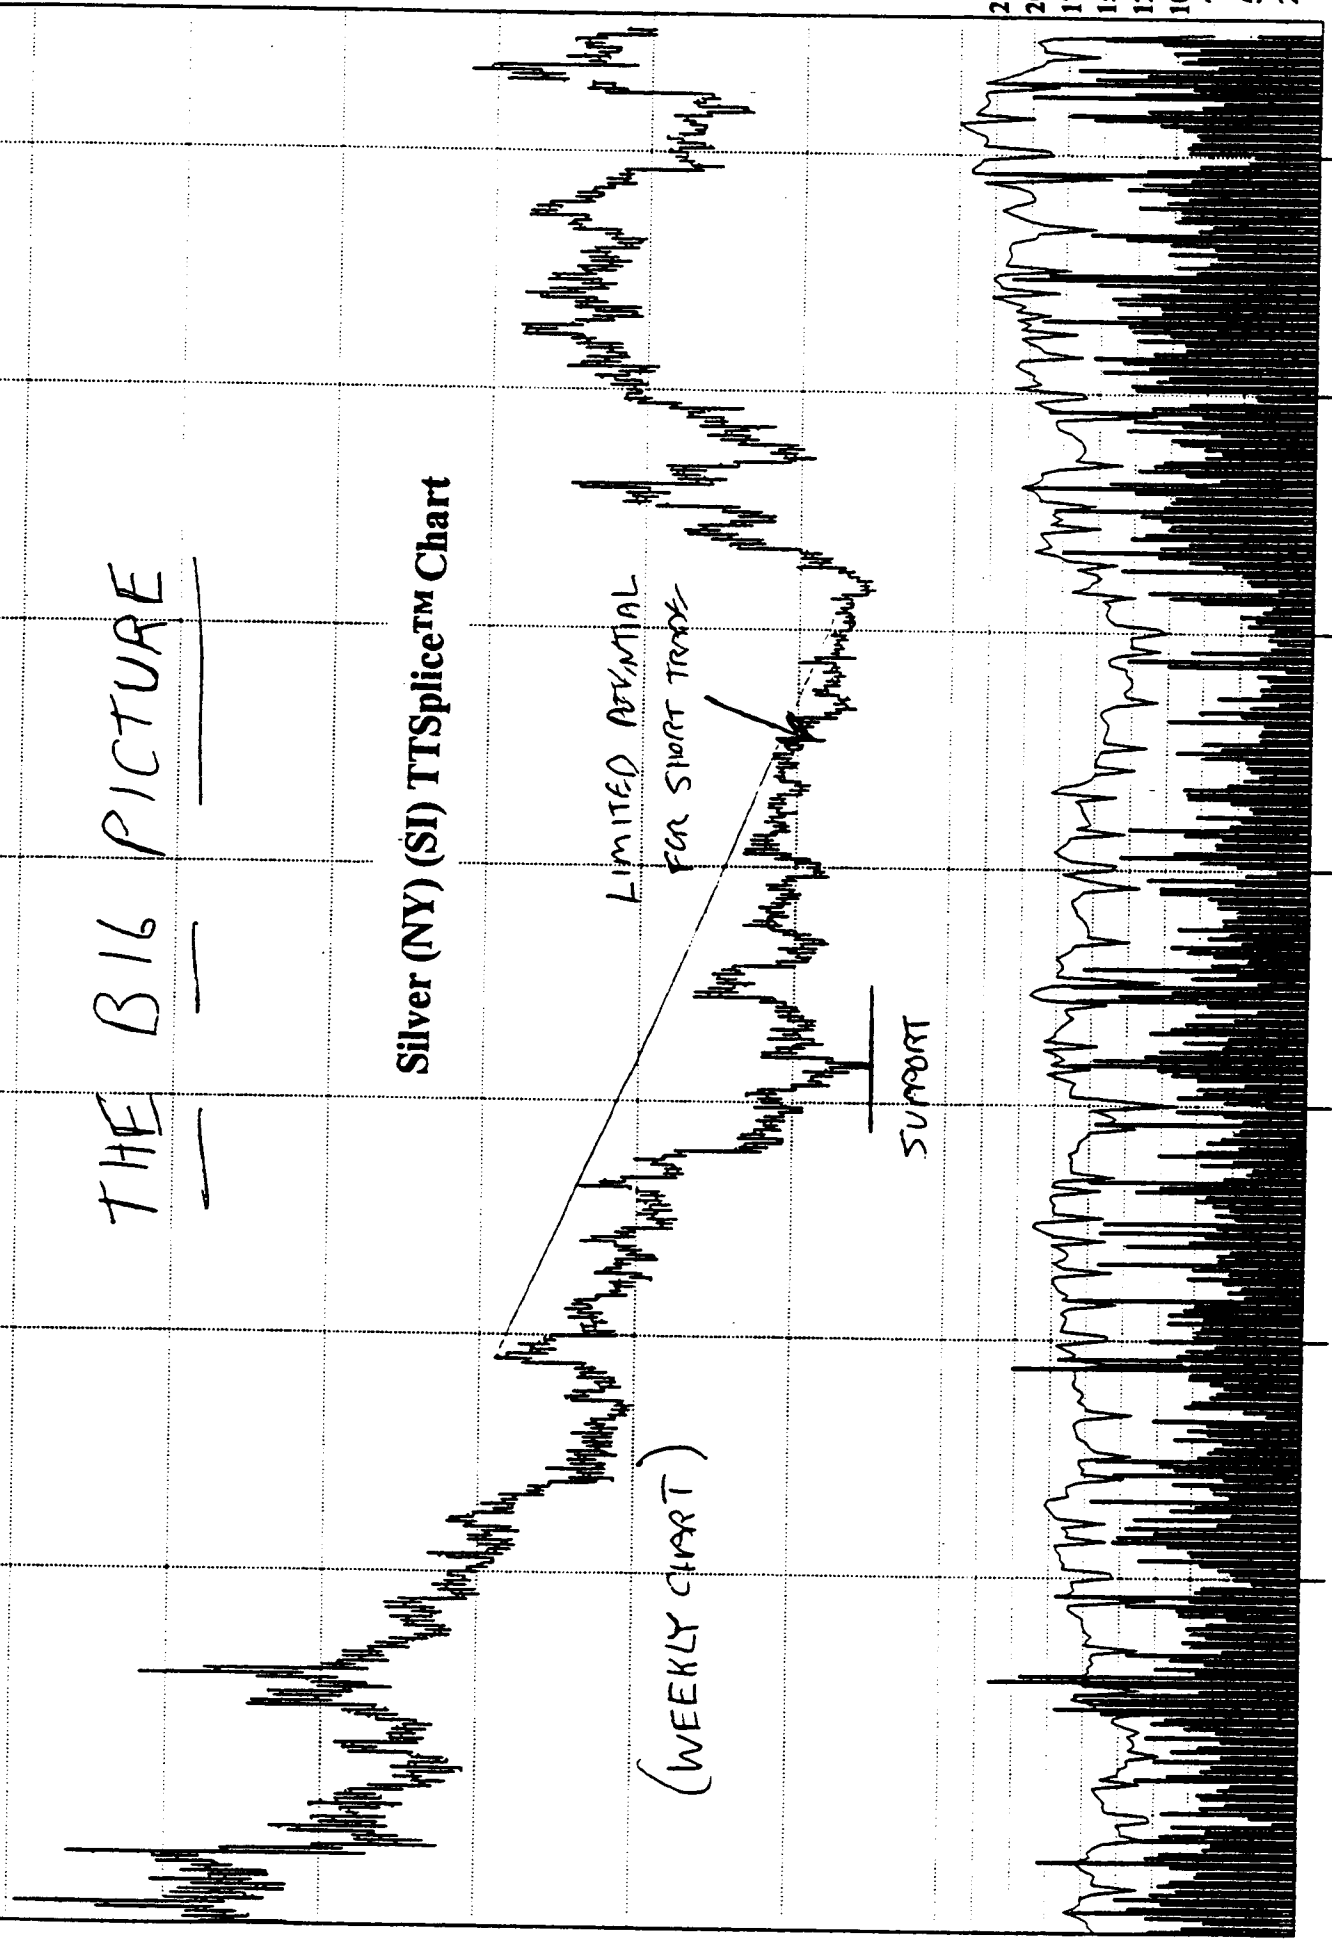 THE BIG PICTURE
Silver (NY) (SI) TTSplice™ Chart
LIMITED POTENTIAL
FOR SHORT TRADE
SUPPORT
(WEEKLY CHART)